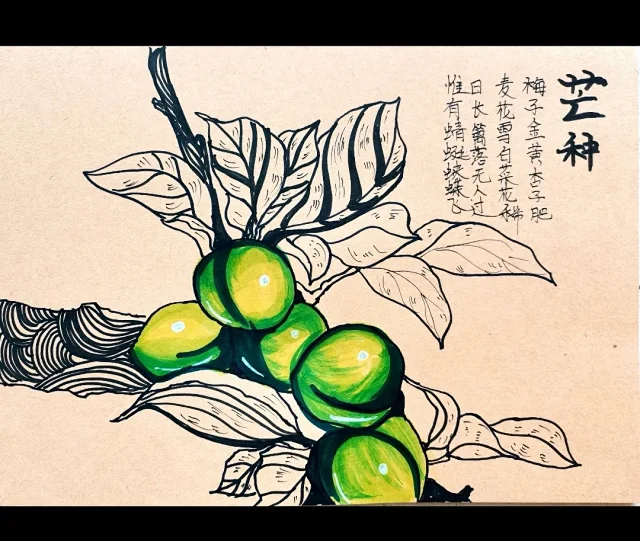 芒种
梅子金黄杏子肥
麦花雪白菜花稀
日长篱落无人过
惟有蜻蜓蛱蝶飞